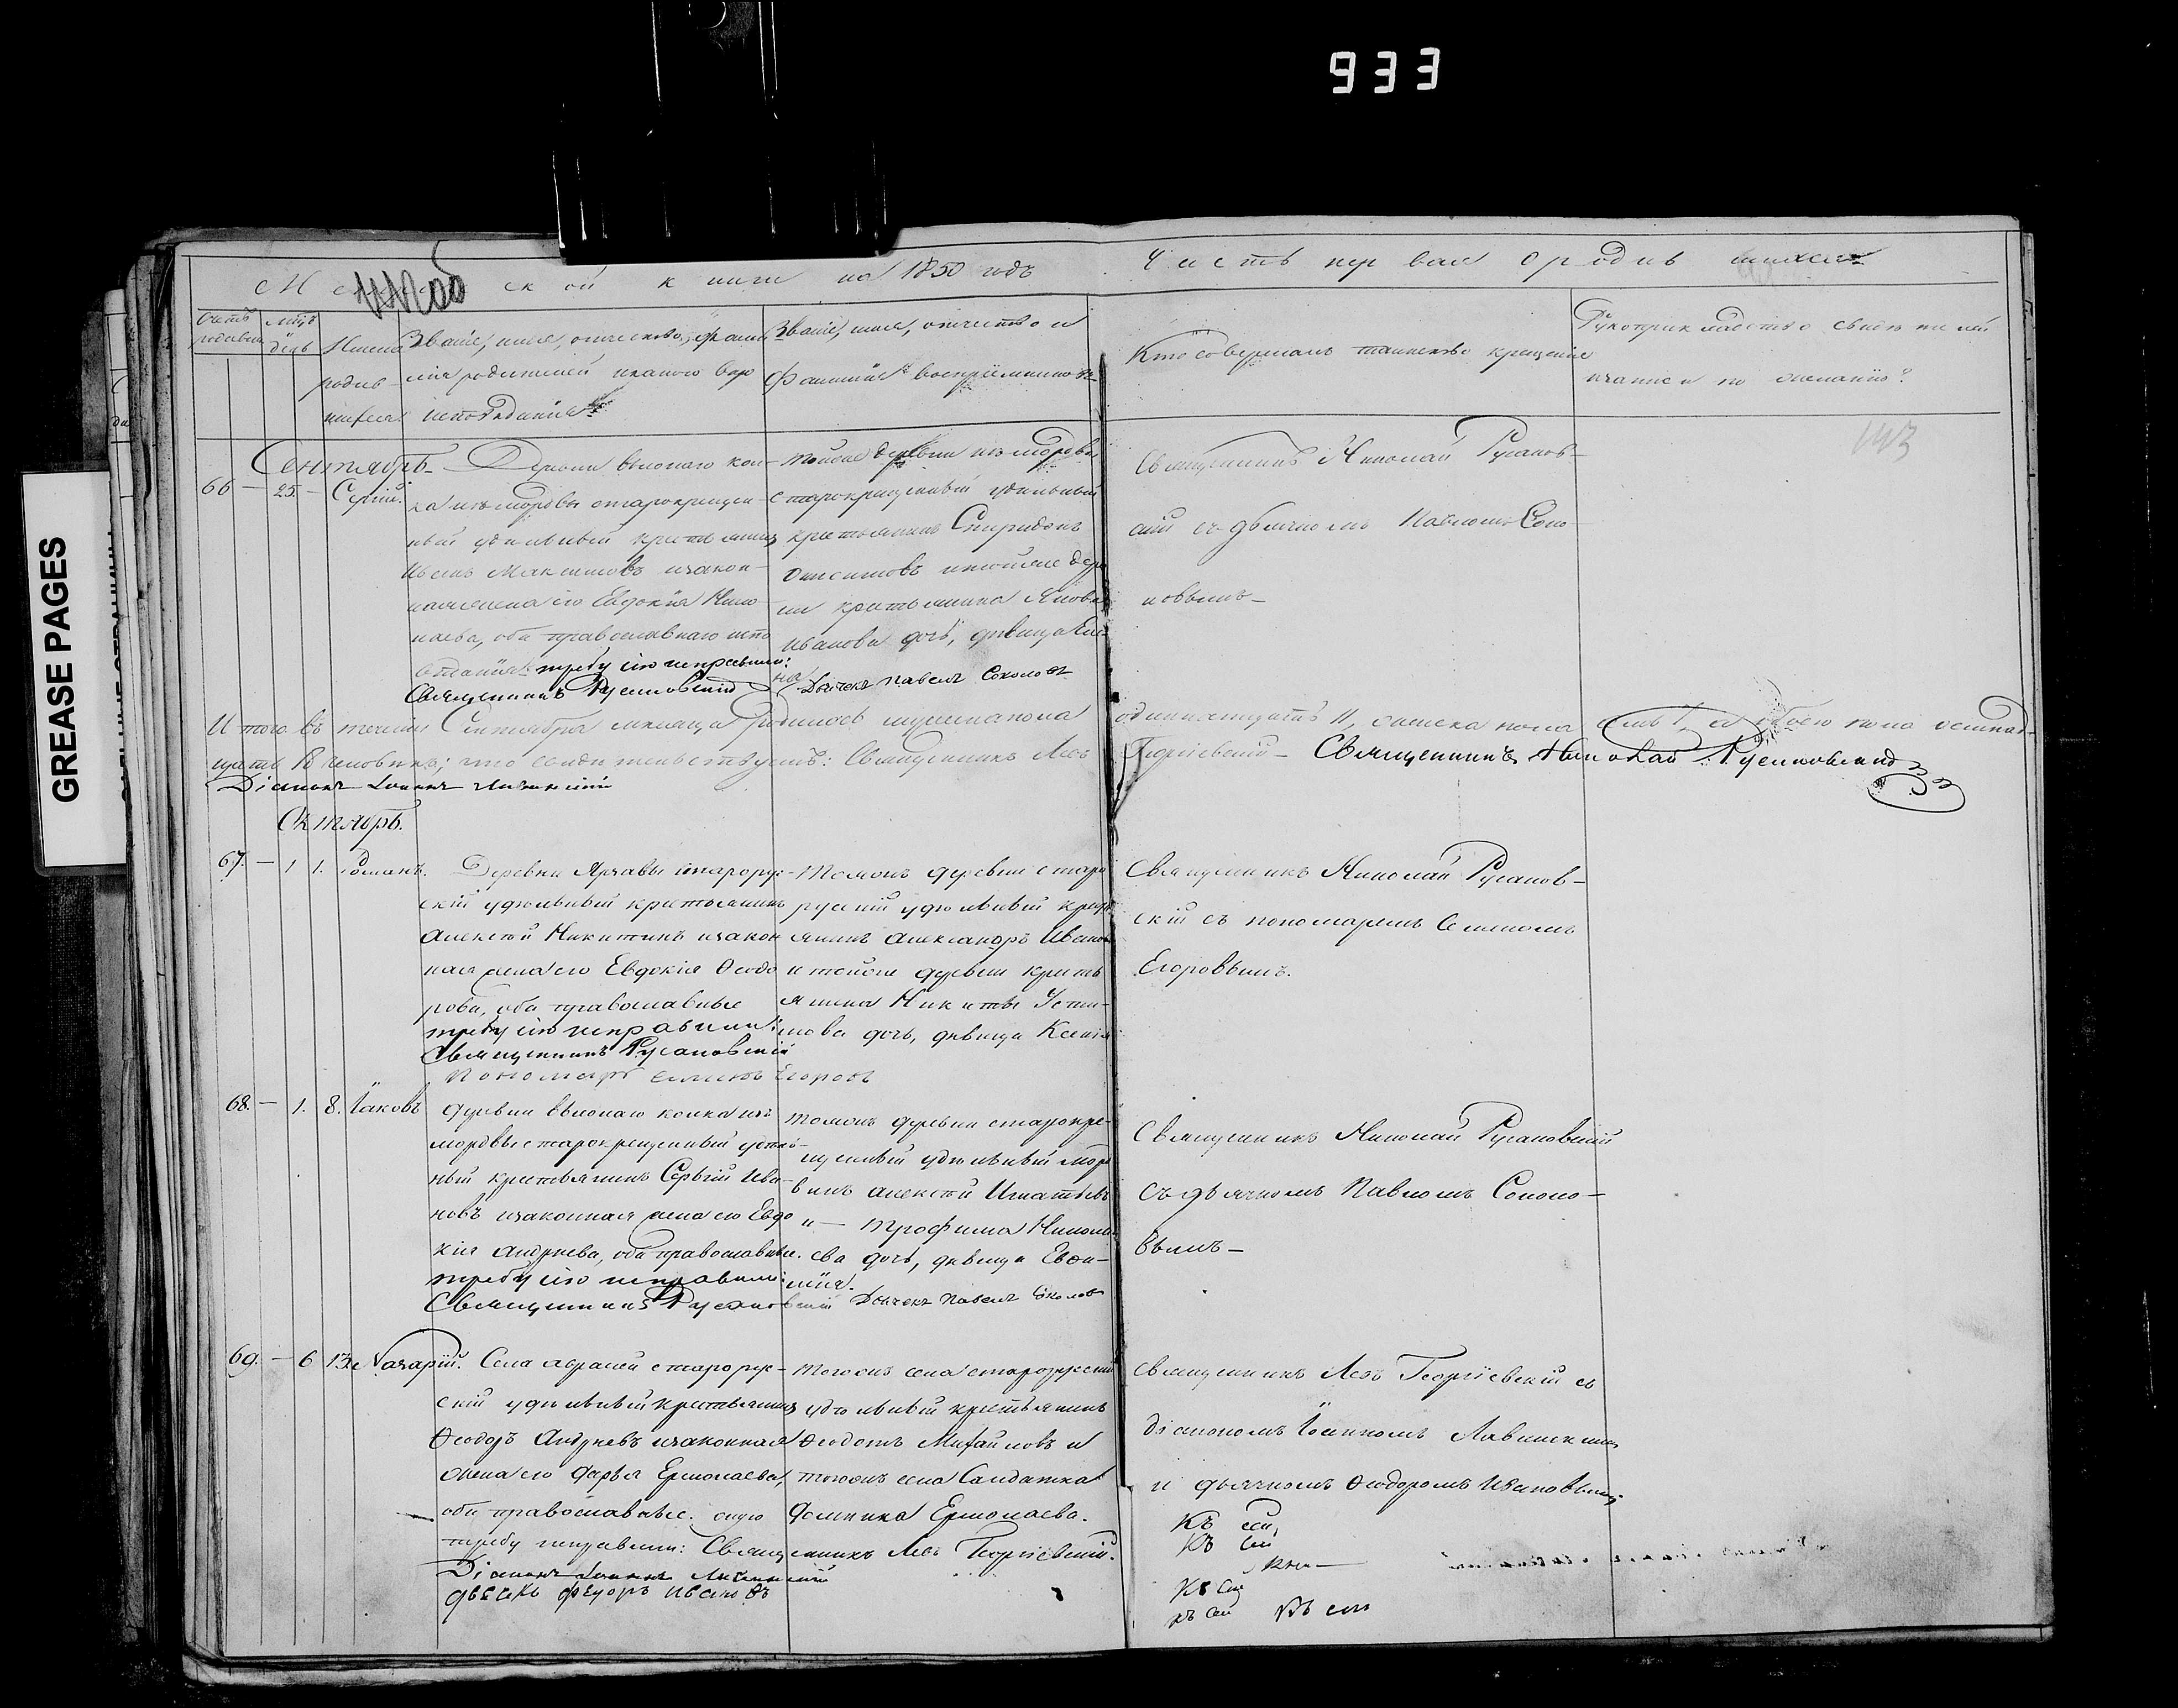 933
GREASE PAGES
Метрической книги на 1850 годъ
Часть первая о родившихся
143
Счетъ родившихся
Мѣсяцъ день
Имена родившихся
Званіе, имя, отчество и фамилія родителей и какого вѣроисповѣданія
Званіе, имя, отчество и фамилія воспріемниковъ
Кто совершалъ таинство крещенія
Рукоприкладство свидѣтелей
записи по желанію?
Сентябрь
66 — 25. — Сергій.
Деревни
ка изъ мордвы старокрещен-
ный удѣльный крестьянинъ
Иванъ Максимовъ и закон-
ная жена его Евдокія Нико-
лаева, оба православнаго испо
вѣданія. требу сію исправили:
Священникъ Русановскій
тойже деревни изъ мордвы
старокрещеный удѣльный
крестьянинъ Спиридонъ
Онисимовъ и тойже дерев
ни крестьянина Якова
Иванова дочь, дѣвица
Дьячекъ Павелъ Соколовъ
Священникъ Николай Русанов-
скій съ дьячкомъ Павломъ Соко-
ловымъ —
Итого въ теченіи Сентября месяца родилось мужеска пола одиннадцать 11, женска пола семь 7, а обоего пола осмнад-
цать 18 человѣкъ; что свидѣтельствуемъ: Священникъ Левъ Георгіевскій — Священникъ Николай Русановскій
Діаконъ Іоаннъ
Октябрь.
67. — 1 1. Романъ.
Деревни старорус-
скій удѣльный крестьянинъ
Алексѣй Никитинъ и закон
ная жена его Евдокія Ѳеодо
рова, оба православные
требу сію исправили:
Священникъ Русановскій
Пономарь Семенъ Егоровъ
Тойже деревни старо
рускій удѣльный крест
янинъ Александръ Иванов
и тойже деревни кресть
янина Никиты Усти-
нова дочь, дѣвица Ксенія
Священникъ Николай Русанов-
скій съ пономаремъ Семеномъ
Егоровымъ.
68. — 1. 8. Іаковъ
деревни
мордвы старокрещеный удѣль-
ный крестьянинъ Сергій Ива-
новъ и законная жена его Евдо
кія Андреева, оба православные.
требу сію исправили:
Священникъ Русановскій Дьячекъ Павелъ Соколовъ
тойже деревни старокре-
щеный удѣльный морд
винъ Алексѣй Игнатьевъ
и — Трофима Никола
ева дочь, дѣвица Евѳи-
мія.
Священникъ Николай Русановскій
съ дьячкомъ Павломъ Соколо-
вымъ —
69. — 6 13. Назарій.
Села старорус-
скій удѣльный крестьянинъ
Ѳеодоръ Андреевъ и законная
жена его Дарья Ермолаева,
оба православные. оную
требу исправили: Священникъ Левъ Георгіевскій.
Діаконъ Іоаннъ
дьячекъ Федоръ Ивановъ
тогожъ села старорускій
удѣльный крестьянинъ
Ѳеодотъ Михайловъ и
тогожъ села Салдатка
Домника Ермолаева.
Священникъ Левъ Георгіевскій съ
діакономъ Іоанномъ
и дьячкомъ Ѳеодоромъ Ивановымъ